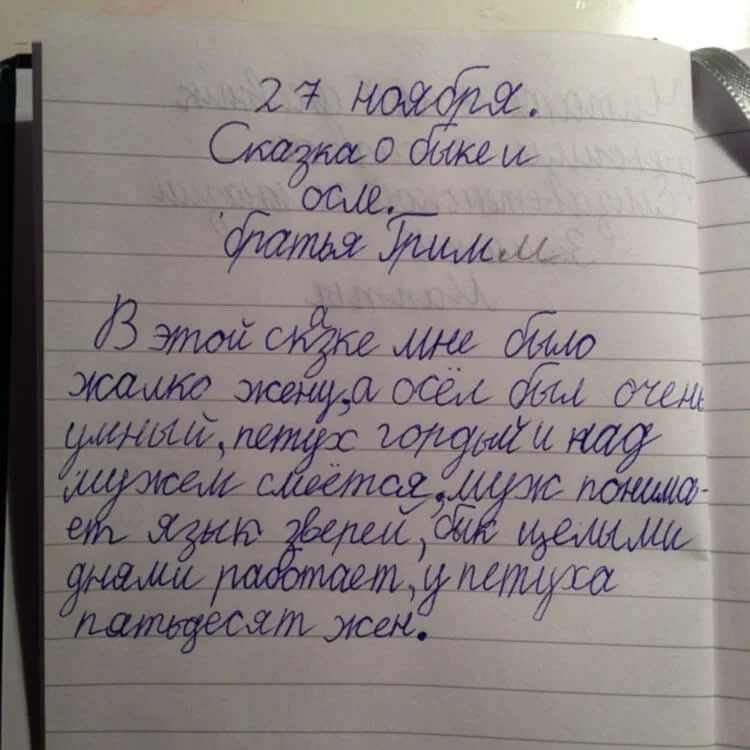 27 ноября.
Сказка о быке и
осле.
братья Гримм
В этой сказке мне было
жалко жену, а осёл был очень
умный, петух гордый и над
мужем смеётся, муж понима-
ет язык зверей, бык щелыми
днями работает, у петуха
патьдесят жен.